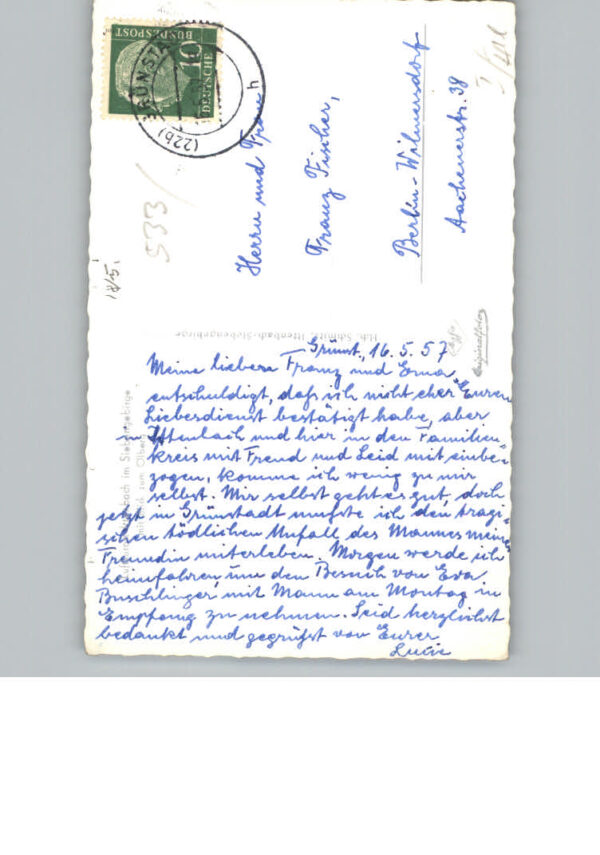 Grünst., 16.5.57
Meine lieben Franz und Erna
entschuldigt, daß ich nicht eher Euren
Lieberdienst bestätigt habe, aber
in Ittenbach und hier in den Familien-
kreis mit Freud und Leid mit einbe-
zogen, komme ich wenig zu mir
selbst. Mir selbst geht es gut, doch
jetzt in Grünstadt mußte ich den tragi-
schen tödlichen Unfall des Mannes meiner
Freundin miterleben. Morgen werde ich
heimfahren, um den Besuch von Eva
Buschlinger mit Mann am Montag in
Empfang zu nehmen. Seid herzlichst
bedankt und gegrüßt von Eurer
Lucie
Herrn und Frau
Franz Fischer,
Berlin-Wilmersdorf
Aachenerstr. 38
DEUTSCHE
BUNDESPOST
10
(22b)
h
533/
18/5.
Schmitz, Ittenbach-Siebengebirge
Originalfoto
bach im Siebengebirge